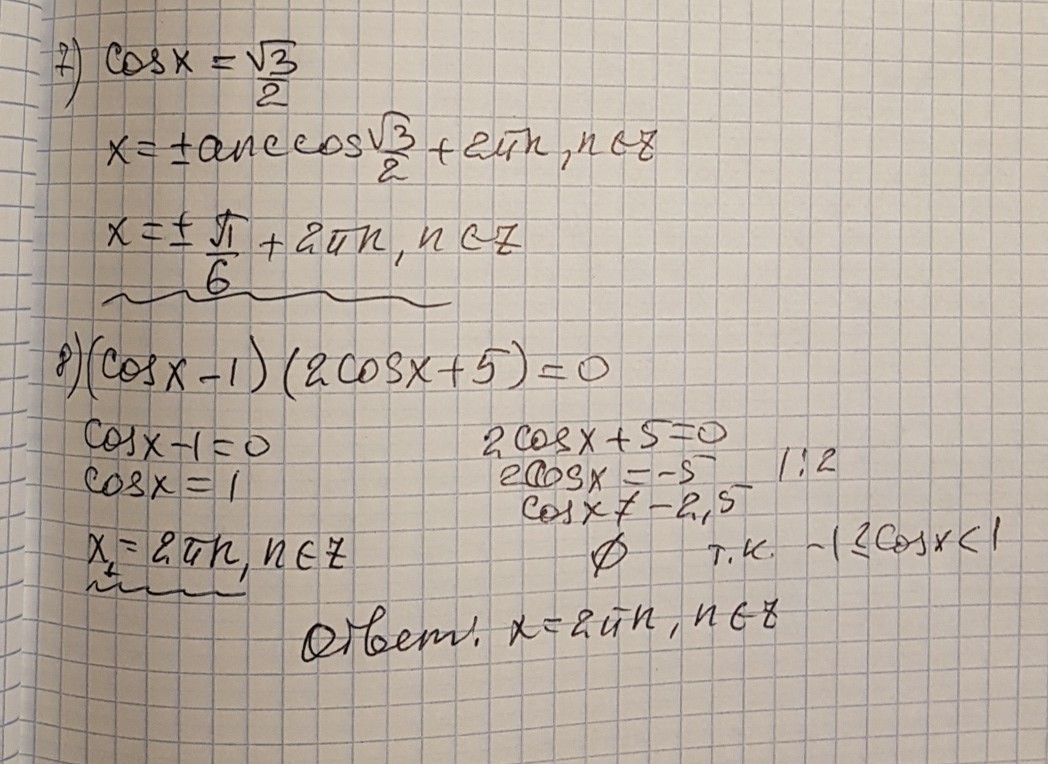 7) cosx = √3/2
x = ± arccos √3/2 + 2πn, n∈Z
x = ± π/6 + 2πn, n∈Z
8) (cosx - 1) (2cosx + 5) = 0
cosx - 1 = 0
cosx = 1
x = 2πn, n∈Z
2cosx + 5 = 0
2cosx = -5 | : 2
cosx ≠ -2,5
∅ т.к. -1 ≤ cosx < 1
Ответ: x = 2πn, n∈Z